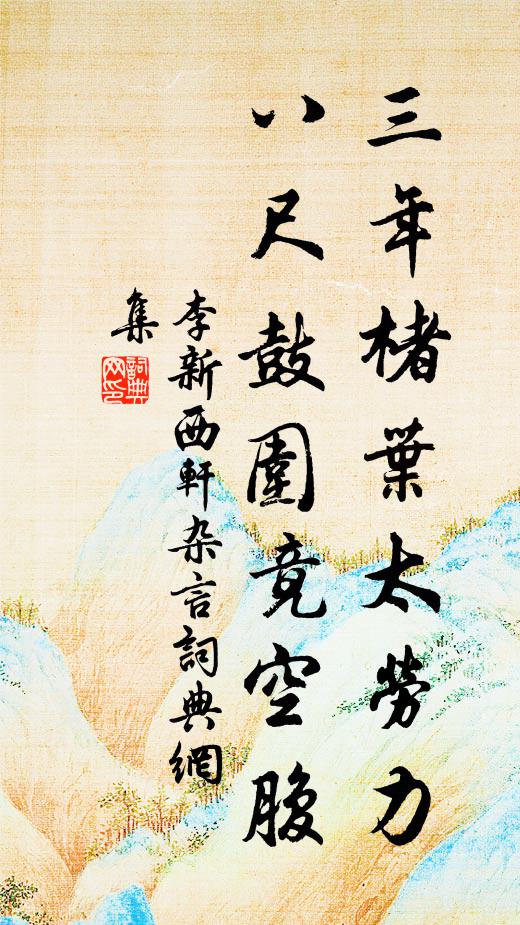 三年楮葉太勞力
八尺鼓圍竟空腹
李新西軒杂言詞典網
集
詞典
网印